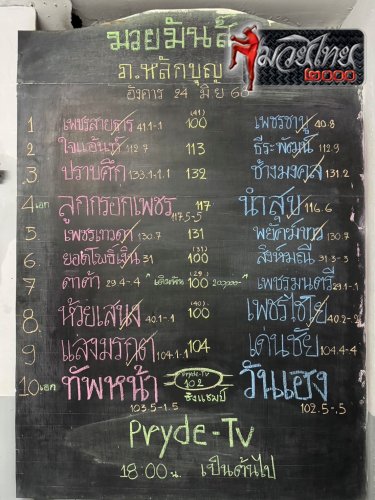 มวยมันส์
มวยไทย
๒๐๐๐
ภ.หลักบุญ
อังคาร 24 มิ.ย 68
1 เพชรสายธาร 41.1-1 (41) 100 เพชรชานุ 40.8
2 ใจแอ้นท์ 112.7 113 ธีระพัฒน์ 112.9
3. ปราบศึก 133.1-1.1 132 ช้างมงคล 131.2
4 เอก ลูกกรอกเพชร 117.5-5 117 นำสุข 116.6
5. เพชรเทวดา 130.7 131 พยัคฆ์ขาว 130.7
6. ยอดโพธิ์เงิน 31 (31) 100 สิงห์มณี 31.3-5
7 ดาต้า 29.4-4 "เดิมพัน (29) 100 200,000-" เพชรมนตรี 29.1-.1
8. ห้วยเสนง 40.1-.1 (40) 100 เพชรไชโย 40.2-2
9 แสงมรกต 104.1-1.1 104 เด่นชัย 104.4-4
10 เอก ทัพหน้า 103.5-1.5 Pryde-TV 102 ชิงแชมป์ วันเฮง 102.5-.5
Pryde-TV
18:00 น. เป็นต้นไป